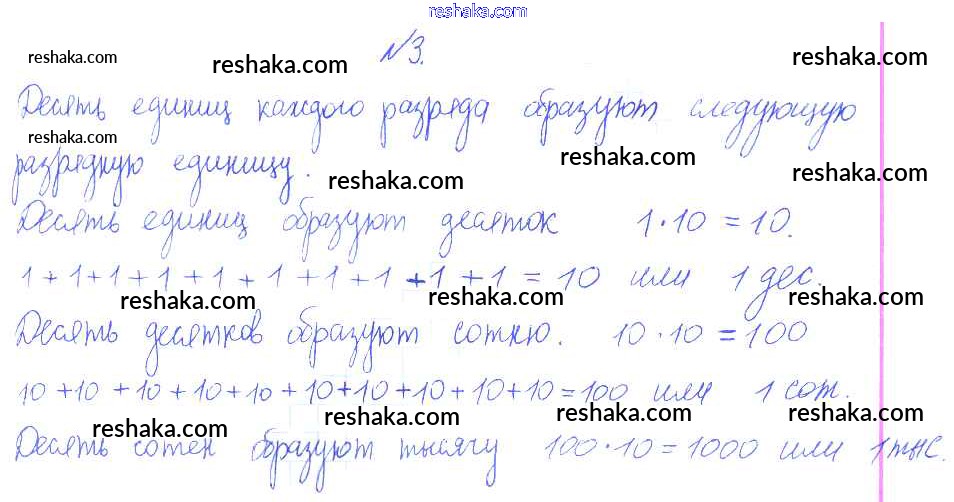 reshaka.com
№3.
reshaka.com reshaka.com reshaka.com
Десять единиц каждого разряда образуют следующую
reshaka.com
разрядную единицу.
reshaka.com reshaka.com reshaka.com
Десять единиц образуют десяток 1·10=10.
1+1+1+1+1+1+1+1+1+1=10 или 1 дес.
reshaka.com reshaka.com reshaka.com
Десять десятков образуют сотню. 10·10=100
10+10+10+10+10+10+10+10+10+10=100 или 1 сот.
reshaka.com reshaka.com reshaka.com reshaka.com
Десять сотен образуют тысячу 100·10=1000 или 1 тыс.